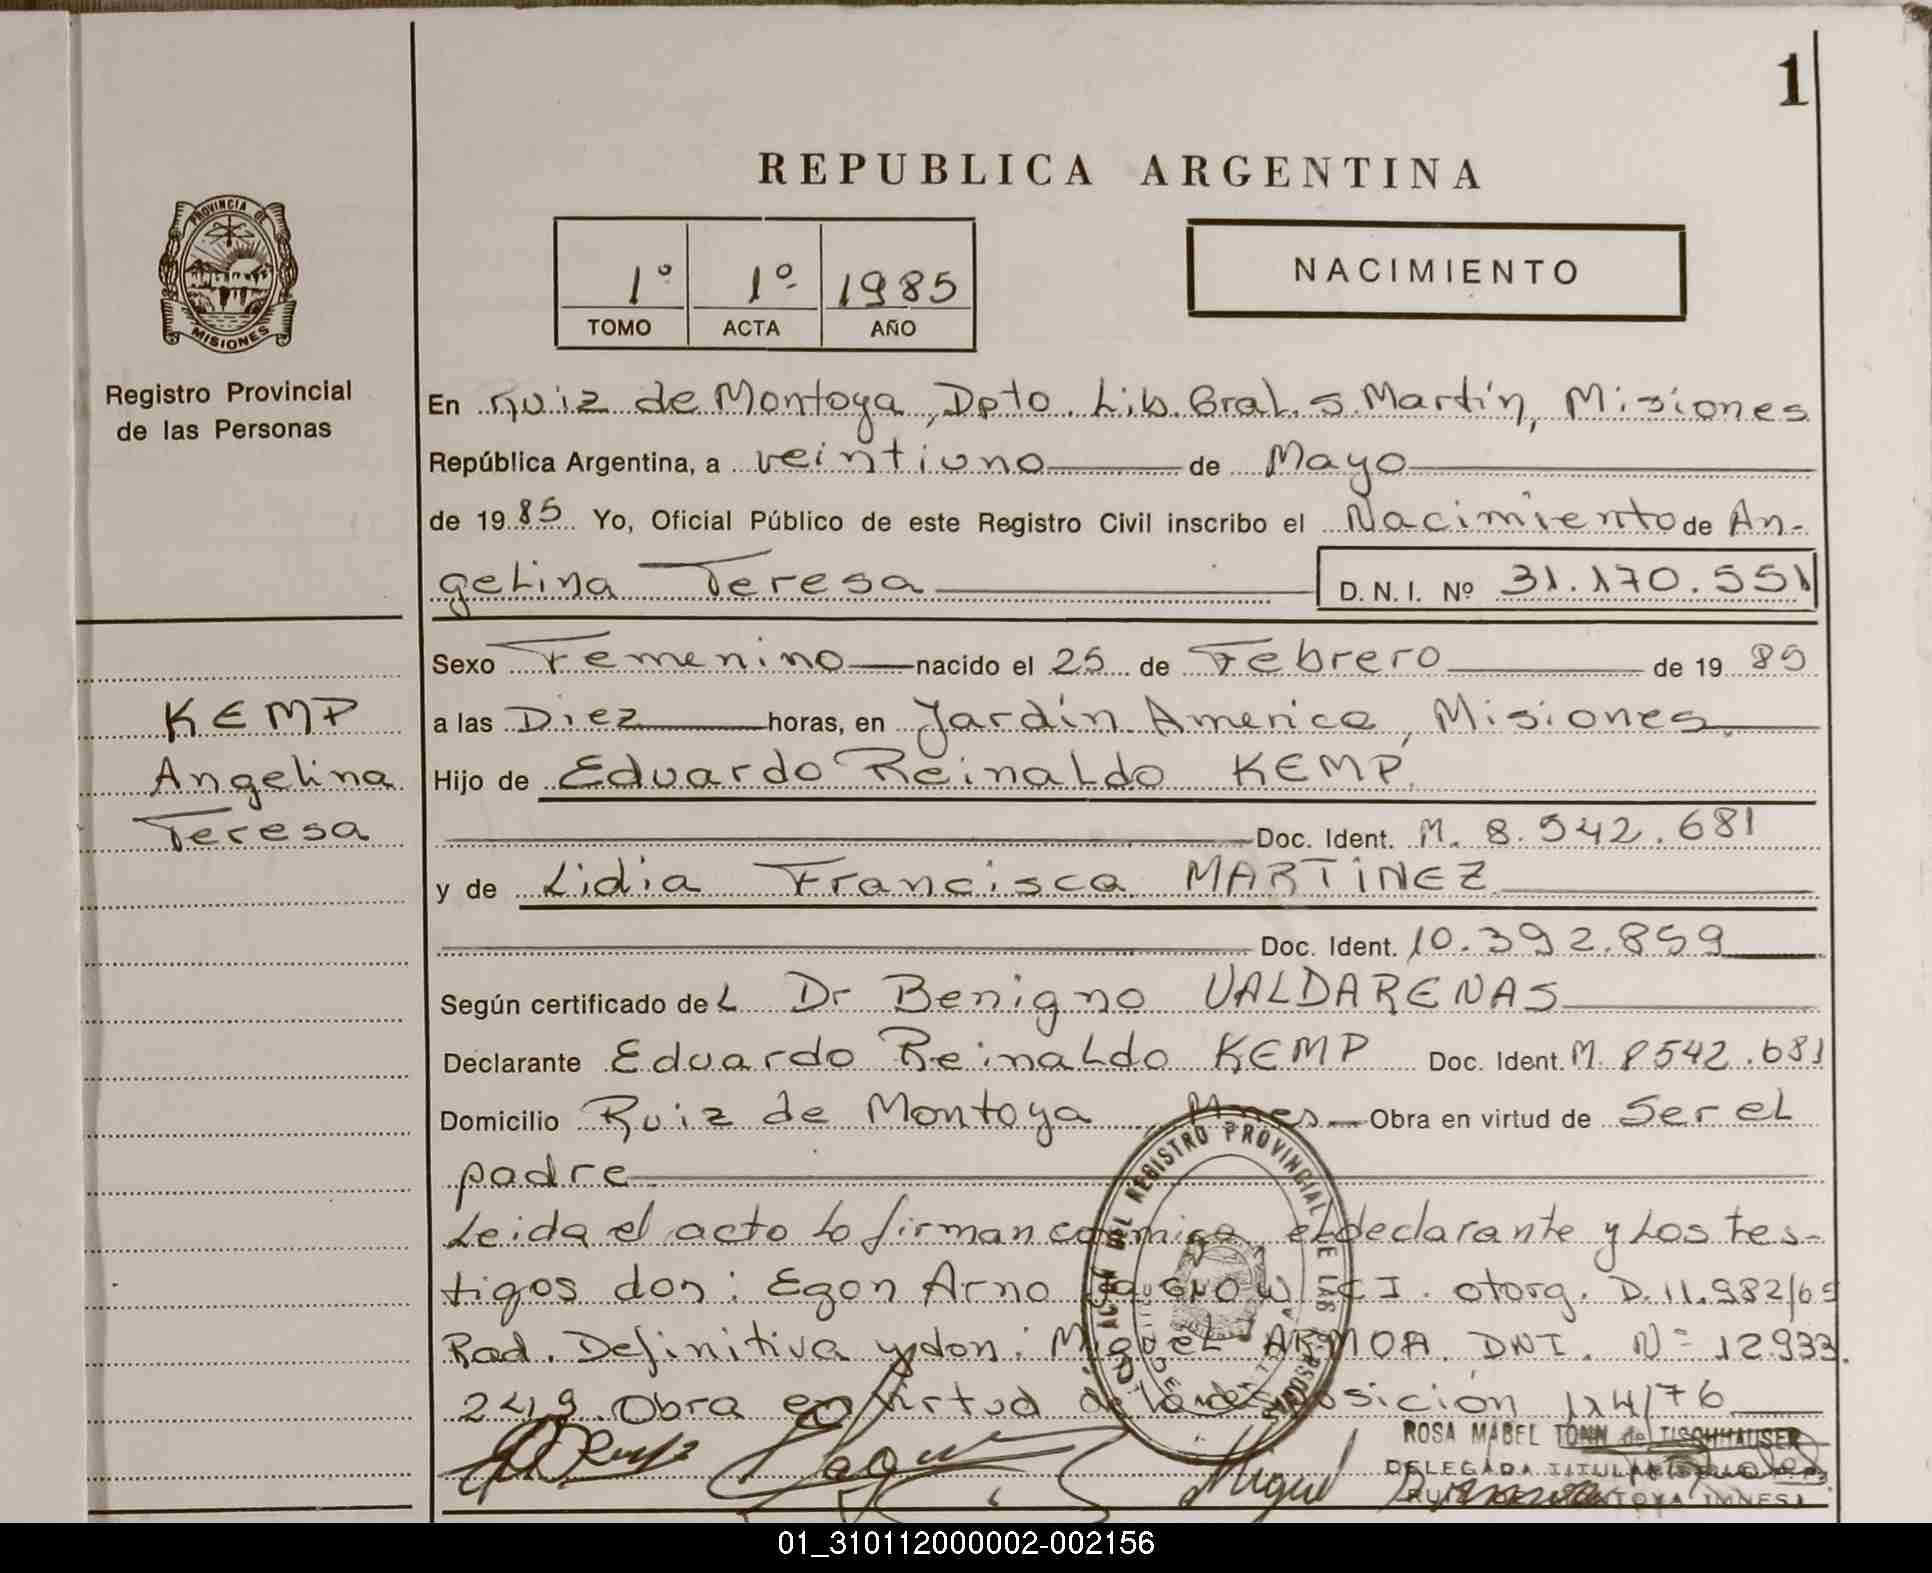 1
REPUBLICA ARGENTINA
PROVINCIA DE
MISIONES
1º 1º 1985
TOMO ACTA AÑO
NACIMIENTO
Registro Provincial
de las Personas
En Ruiz de Montoya, Dpto. Lib. Gral. S. Martín, Misiones
República Argentina, a veintiuno de Mayo
de 1985 Yo, Oficial Público de este Registro Civil inscribo el Nacimiento de An-
gelina Teresa D.N.I. Nº 31.170.551
Sexo Femenino nacido el 25 de Febrero de 1985
KEMP
Angelina
Teresa
a las Diez horas, en Jardín America, Misiones
Hijo de Eduardo Reinaldo KEMP
Doc. Ident. M. 8.542.681
y de Lidia Francisca MARTINEZ
Doc. Ident. 10.392.859
Según certificado del Dr Benigno VALDARENAS
Declarante Eduardo Reinaldo KEMP Doc. Ident. M. 8542.681
Domicilio Ruiz de Montoya Mnes Obra en virtud de Ser el
padre
Leida el acto lo firman conmigo el declarante y los tes-
tigos don: Egon Arno C I. otorg. D. 11.982/65
Rad. Definitiva y don: Miguel ARMOA. DNI. Nº 12933.
249 Obra en virtud de la disposición 124/76
REGISTRO PROVINCIAL DE LAS PERSONAS
ROSA MABEL TONN de TISCHHAUSER
DELEGADA TITULAR
Miguel
01_310112000002-002156